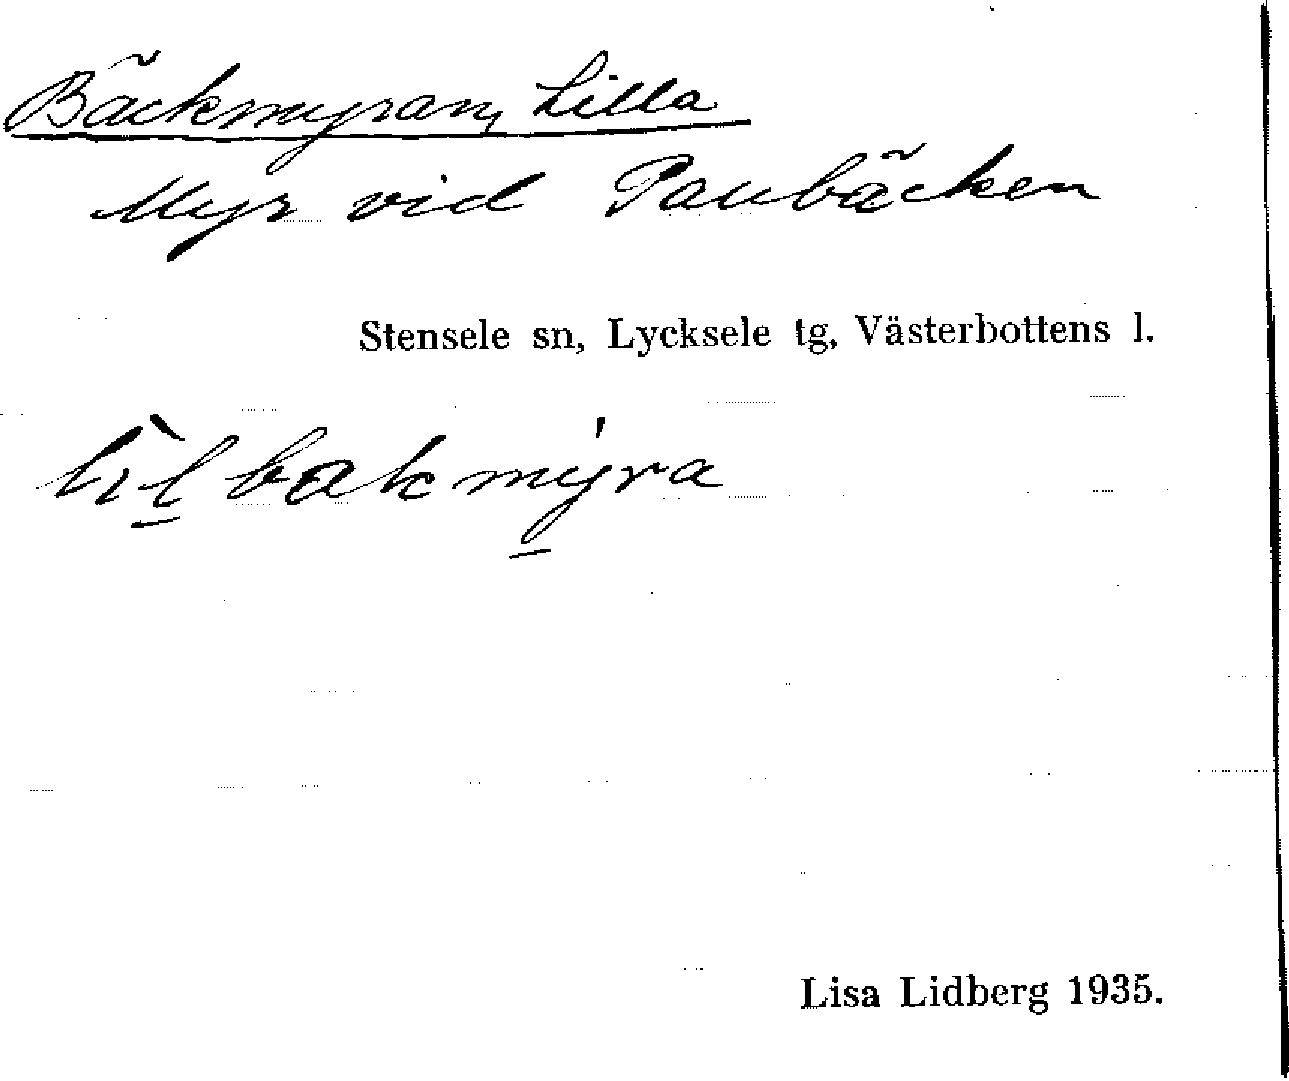 Bäckmyran, Lilla
Myr vid Paubäcken
Stensele sn, Lycksele tg, Västerbottens l.
lìlbakmýra
Lisa Lidberg 1935.